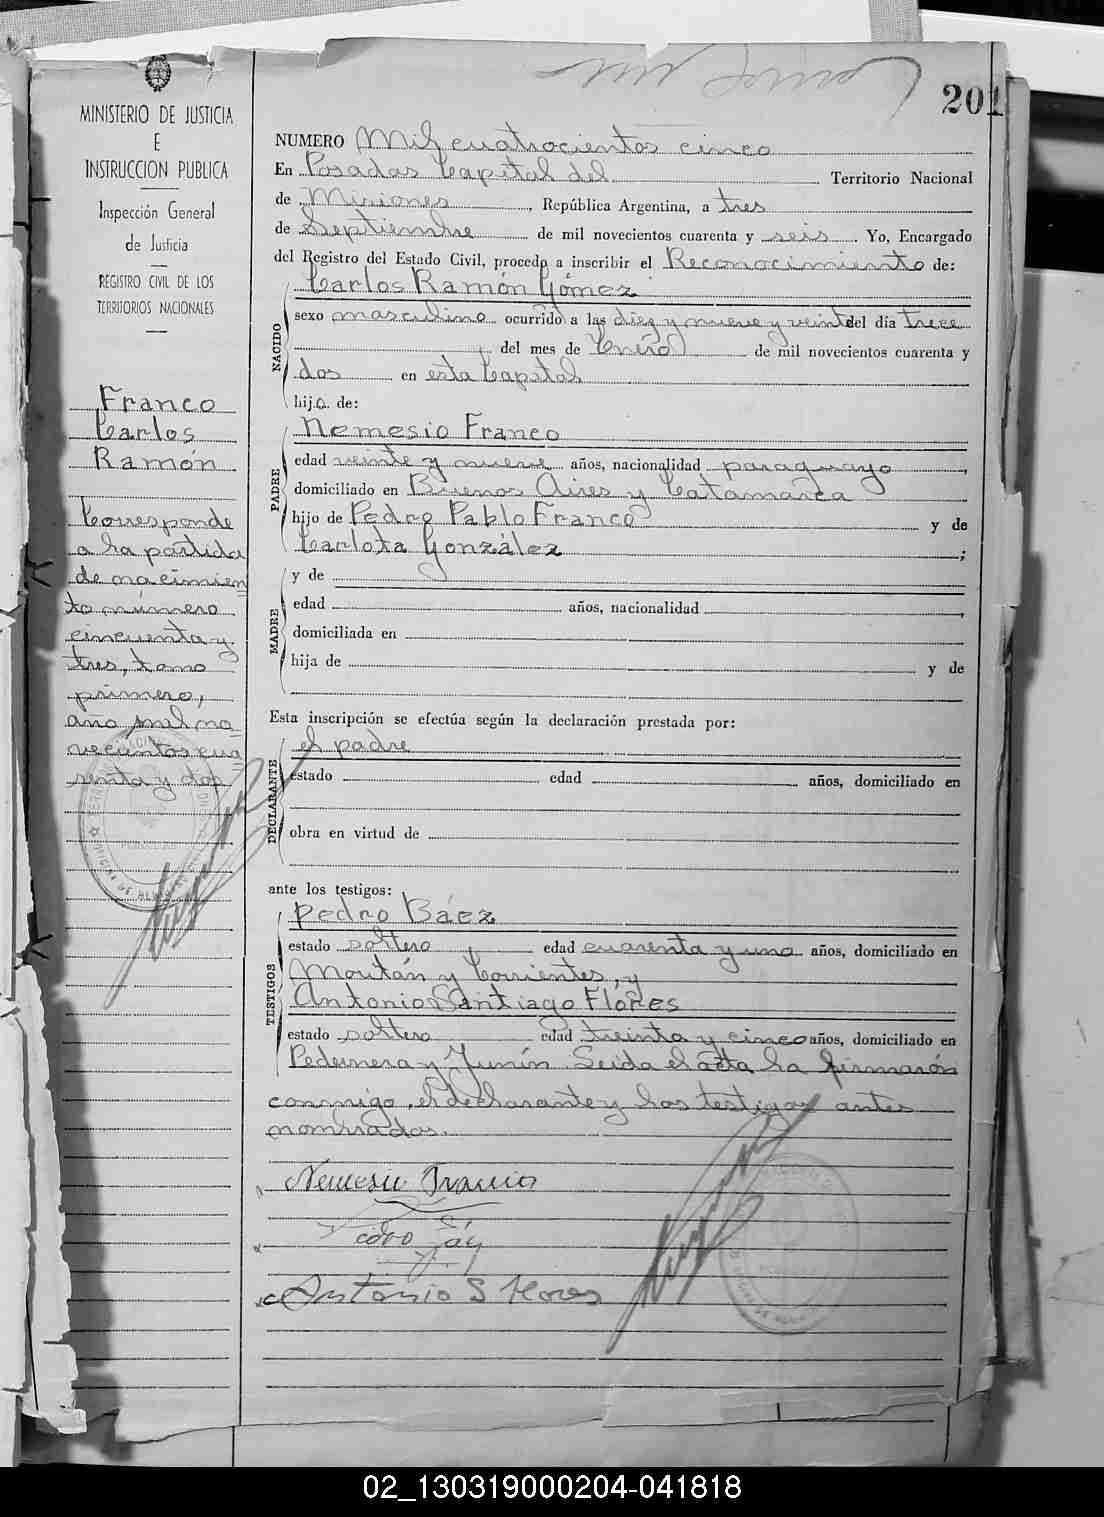 201
MINISTERIO DE JUSTICIA
E
INSTRUCCION PUBLICA
Inspección General
de Justicia
REGISTRO CIVIL DE LOS
TERRITORIOS NACIONALES
Franco
Carlos
Ramón
Corresponde
a la partida
de nacimien
to número
cincuenta y
tres, tomo
primero,
año mil no
vecientos cua
renta y dos
NUMERO Mil cuatrocientos cinco
En Posadas Capital del Territorio Nacional
de Misiones, República Argentina, a tres
de Septiembre de mil novecientos cuarenta y seis. Yo, Encargado
del Registro del Estado Civil, procedo a inscribir el Reconocimiento de:
Carlos Ramón Gómez
NACIDO
sexo masculino ocurrido a las diez y nueve y veinte del día trece
del mes de Enero de mil novecientos cuarenta y
dos en esta Capital
hijo de:
Nemesio Franco
PADRE
edad veinte y nueve años, nacionalidad paraguayo,
domiciliado en Buenos Aires y Catamarca
hijo de Pedro Pablo Franco y de
Carlota González;
MADRE
y de
edad años, nacionalidad
domiciliada en
hija de y de
Esta inscripción se efectúa según la declaración prestada por:
el padre
DECLARANTE
estado edad años, domiciliado en
obra en virtud de
ante los testigos:
Pedro Báez
TESTIGOS
estado soltero, edad cuarenta y uno años, domiciliado en
y Corrientes, y
Antonio Santiago Flores
estado soltero edad treinta y cinco años, domiciliado en
Pedernera y Junín. Leida el acta la firmarón
conmigo, el declarante y los testigos antes
nombrados.
Nemesio Franco
Antonio S Flores
02_130319000204-041818